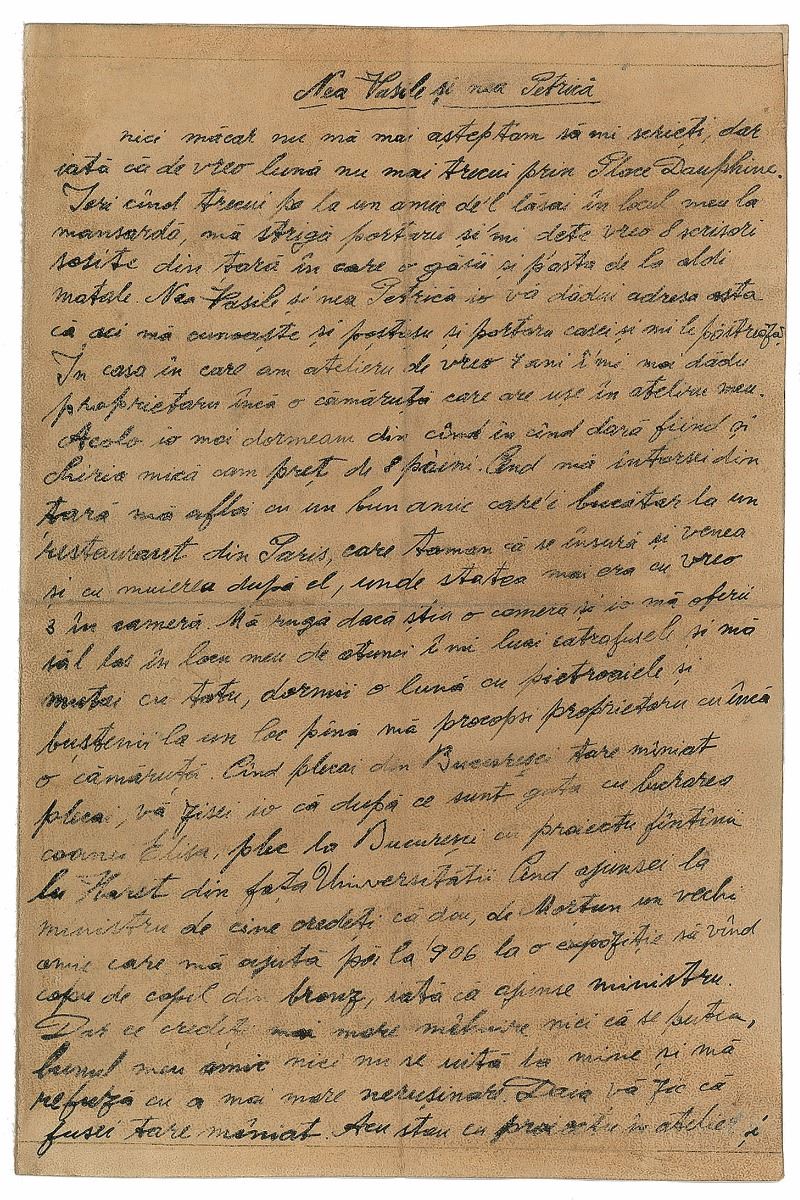 Nea Vasile și nea Petrică
nici măcar nu mă mai așteptam să mi scrieți, dar
iată că de vreo lună nu mai trecui prin Place Dauphine.
Ieri cînd trecui pe la un amic de'l lăsai în locul meu la
mansardă, mă strigă portaru și'mi dete vreo 8 scrisori
sosite din țară în care o găsii și p'asta de la aldi
matale. Nea Vasile și nea Petrică io vă dădui adresa asta
că aci mă cunoaște și poștașu și portaru casei și mi le păstrează
În casa în care am atelieru de vreo 7 ani î'mi mai dădu
proprietaru încă o cămăruță care are ușe în atelieru meu.
Acolo io mai dormeam din cînd în cînd dară fiind și
chiria mică cam preț de 8 pâini. Cînd mă întorsei din
țară mă aflai cu un bun amic care'i bucătar la un
restaurant din Paris, care taman că se însură și venea
și cu muierea după el, unde statea mai era cu vreo
3 în cameră. Mă rugă dacă știa o camera și io mă oferii
să'l las în locu meu de atunci î mi luai catrafusele și mă
mutai cu totu, dormii o lună cu pietroaiele și
buștenii la un loc pînă mă procopsi proprietaru cu încă
o cămăruță. Cînd plecai din București tare mîniat
plecai, vă zisei io că după ce sunt gata cu lucrarea
coanei Elisa, plec la București cu proiectu fîntînii
lu Haret din fața Universității Cînd ajunsei la
ministru de cine credeți că dau, de Mortun un vechi
amic care mă ajută pă la '906 la o expoziție să vînd
capu de copil din bronz, iată că ajunse ministru.
Dar ce credeți mai mare mîhnire nici că se putea,
bunul meu amic nici nu se uită la mine și mă
refuză cu o mai mare nerușinare. Daia vă zic că
fusei tare mîniat. Acu stau cu proiectu în atelier și